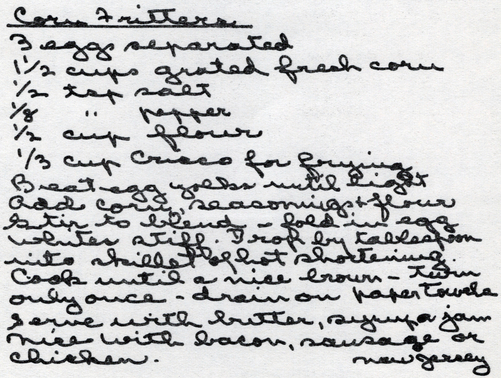 Corn Fritters
3 eggs separated
1 1/2 cups grated fresh corn
1/2 tsp salt
1/8 " pepper
1/2 cup flour
1/3 cup Crisco for frying
Beat egg yolks until light
Add corn, seasonings & flour
Stir to blend - fold in egg
whites stiff. Drop by tablespoon
into skillet of hot shortening.
Cook until a nice brown - turn
only once - drain on paper towels
Serve with butter, syrup, jam
Nice with bacon, sausage or
chicken. New Jersey